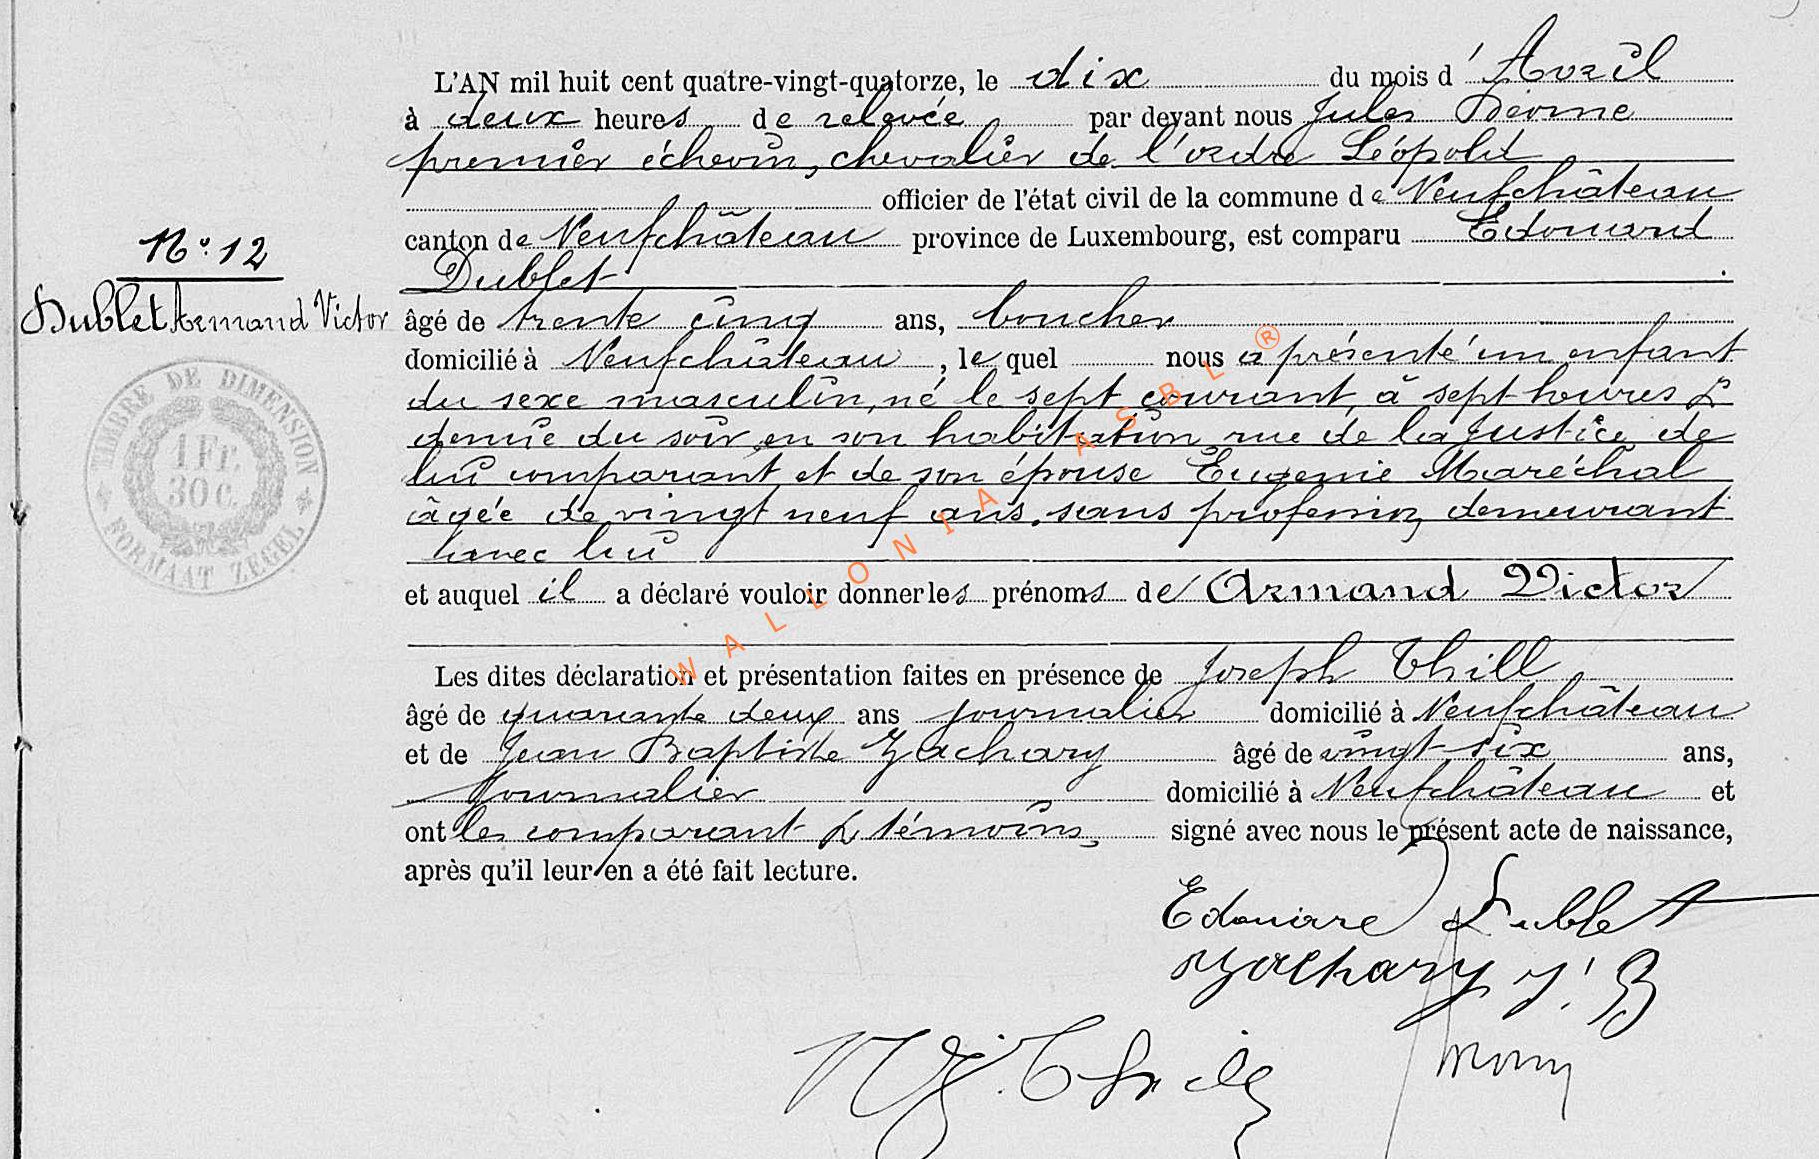 L'AN mil huit cent quatre-vingt-quatorze, le dix du mois d'Avril
à deux heures de relevée par devant nous Jules
premier échevin, chevalier de l'ordre Léopold
officier de l'état civil de la commune de Neufchâteau
canton de Neufchâteau province de Luxembourg, est comparu Edouard
Dublet
N° 12
Dublet Armand Victor
âgé de trente cinq ans, boucher
domicilié à Neufchâteau, lequel nous a présenté un enfant
du sexe masculin, né le sept courant, à sept heures &
demie du soir en son habitation, rue de la Justice, de
lui comparant et de son épouse Eugenie Maréchal
âgée de vingt neuf ans, sans profession, demeurant
avec lui
et auquel il a déclaré vouloir donner les prénoms de Armand Victor
Les dites déclaration et présentation faites en présence de Joseph Thill
âgé de quarante deux ans journalier domicilié à Neufchâteau
et de Jean Baptiste Zachary âgé de vingt-six ans,
journalier domicilié à Neufchâteau et
ont les comparant & témoins, signé avec nous le présent acte de naissance,
après qu'il leur en a été fait lecture.
Edouard Dublet
Zachary J. B
J. Thill
TIMBRE DE DIMENSION
1 FR.
30 C.
FORMAAT ZEGEL
WALLONIA ASBL ®